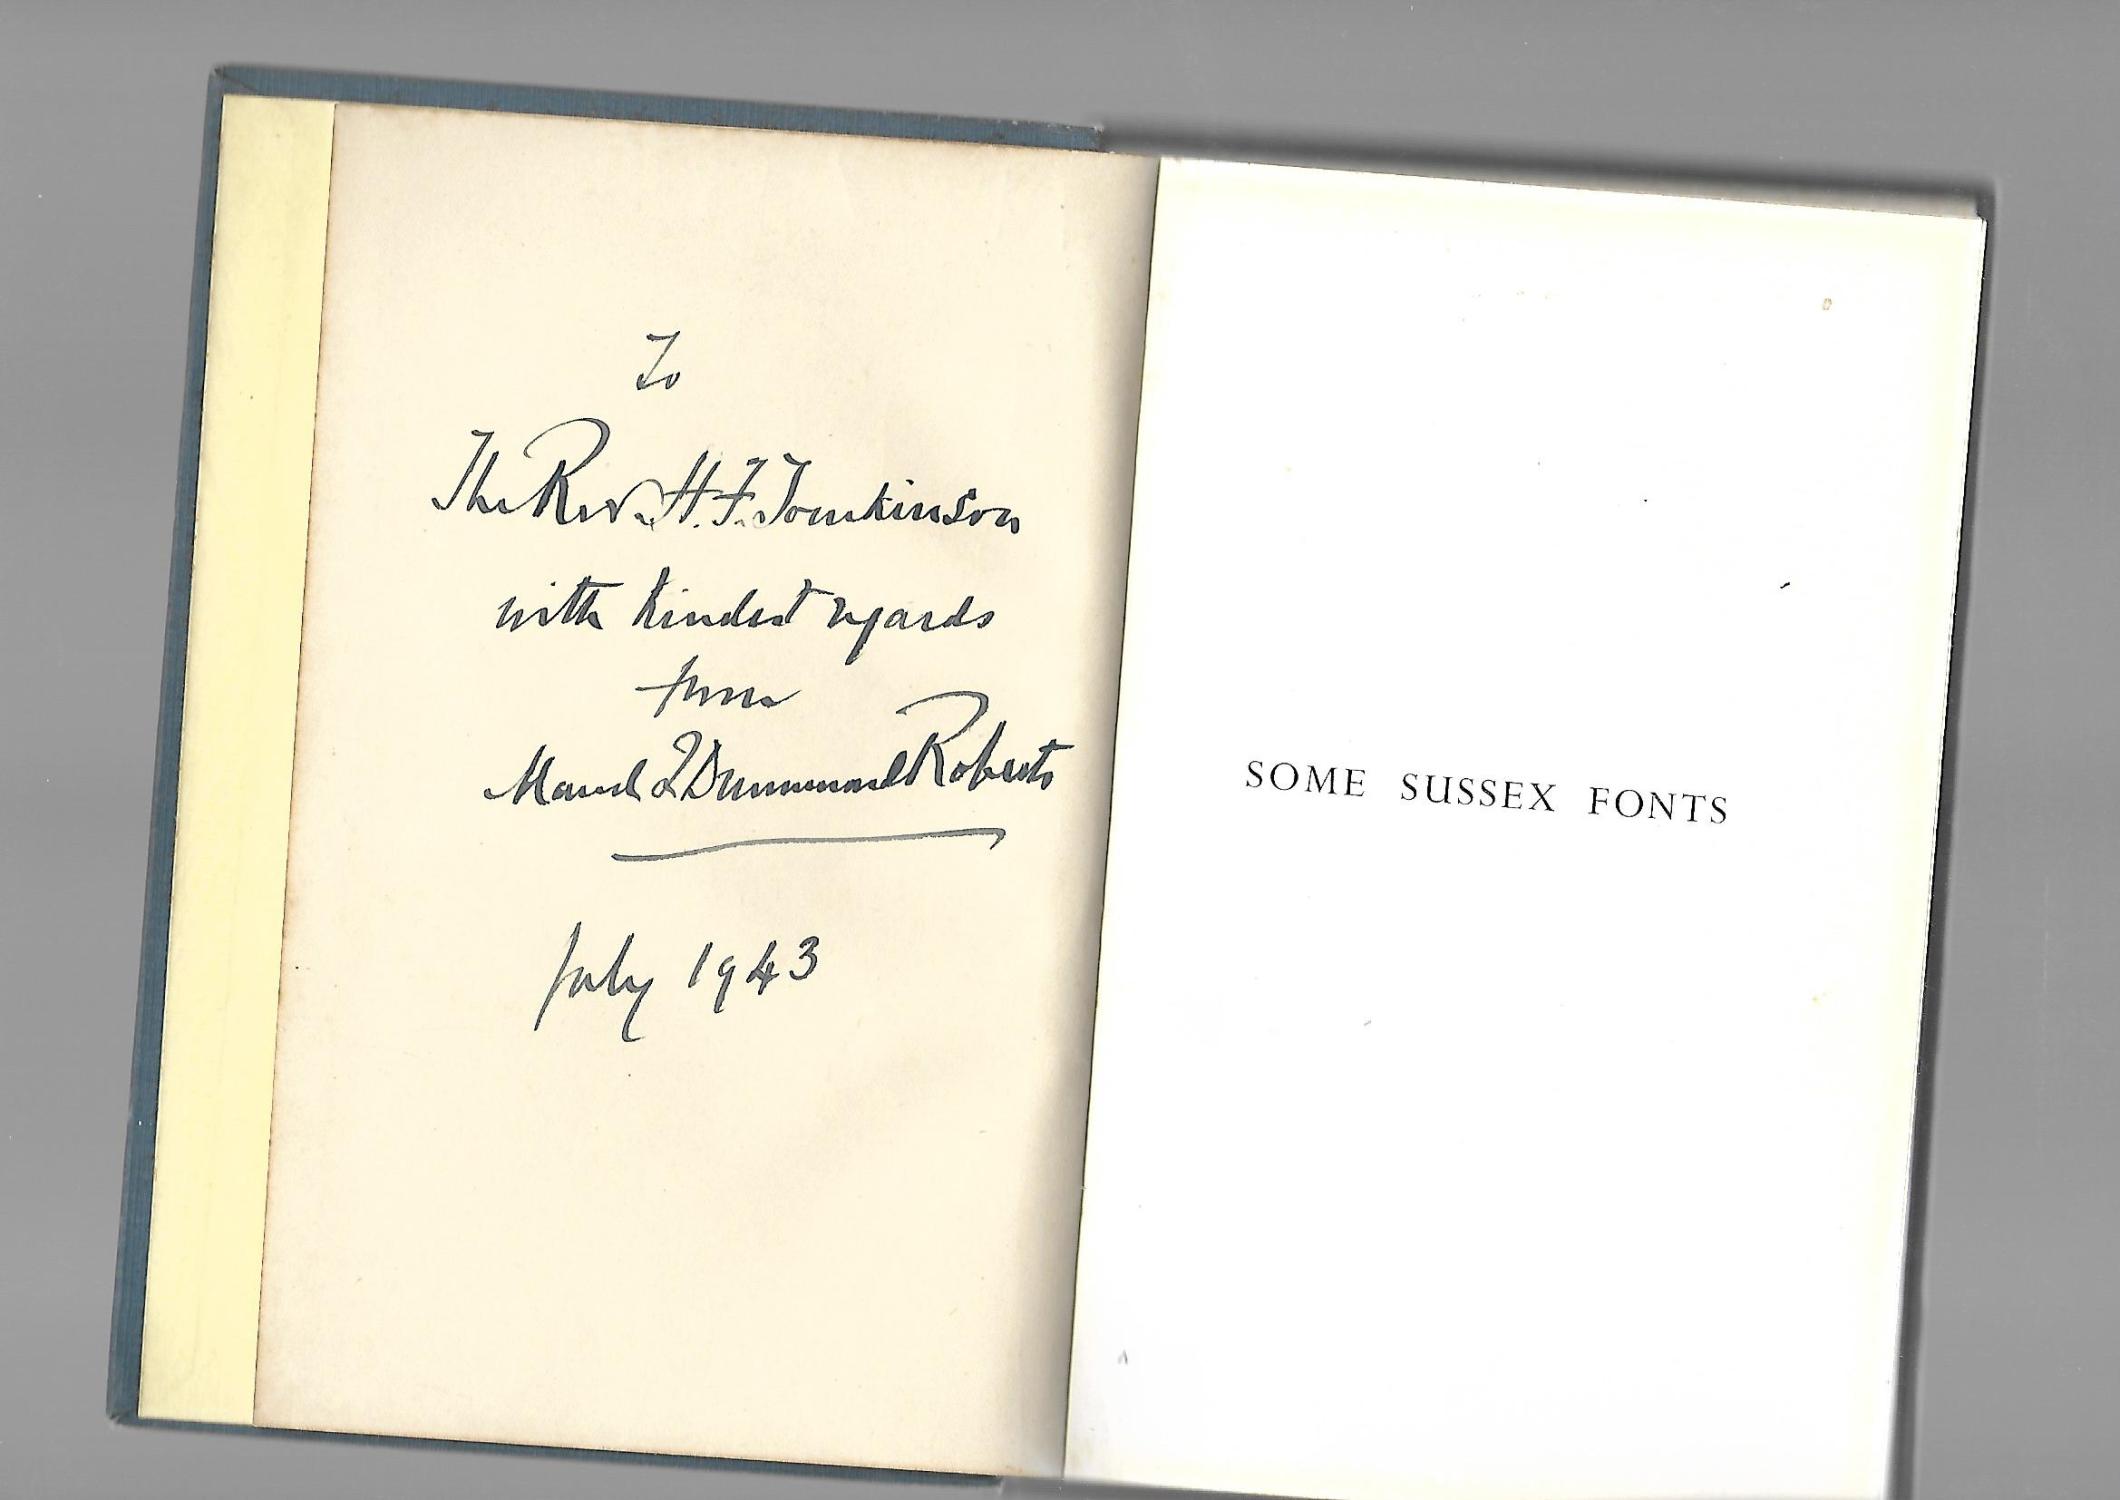 To
The Rev. H. F. Tomkinson
with kindest regards
from
Maud & Drummond Roberts
July 1943
SOME SUSSEX FONTS